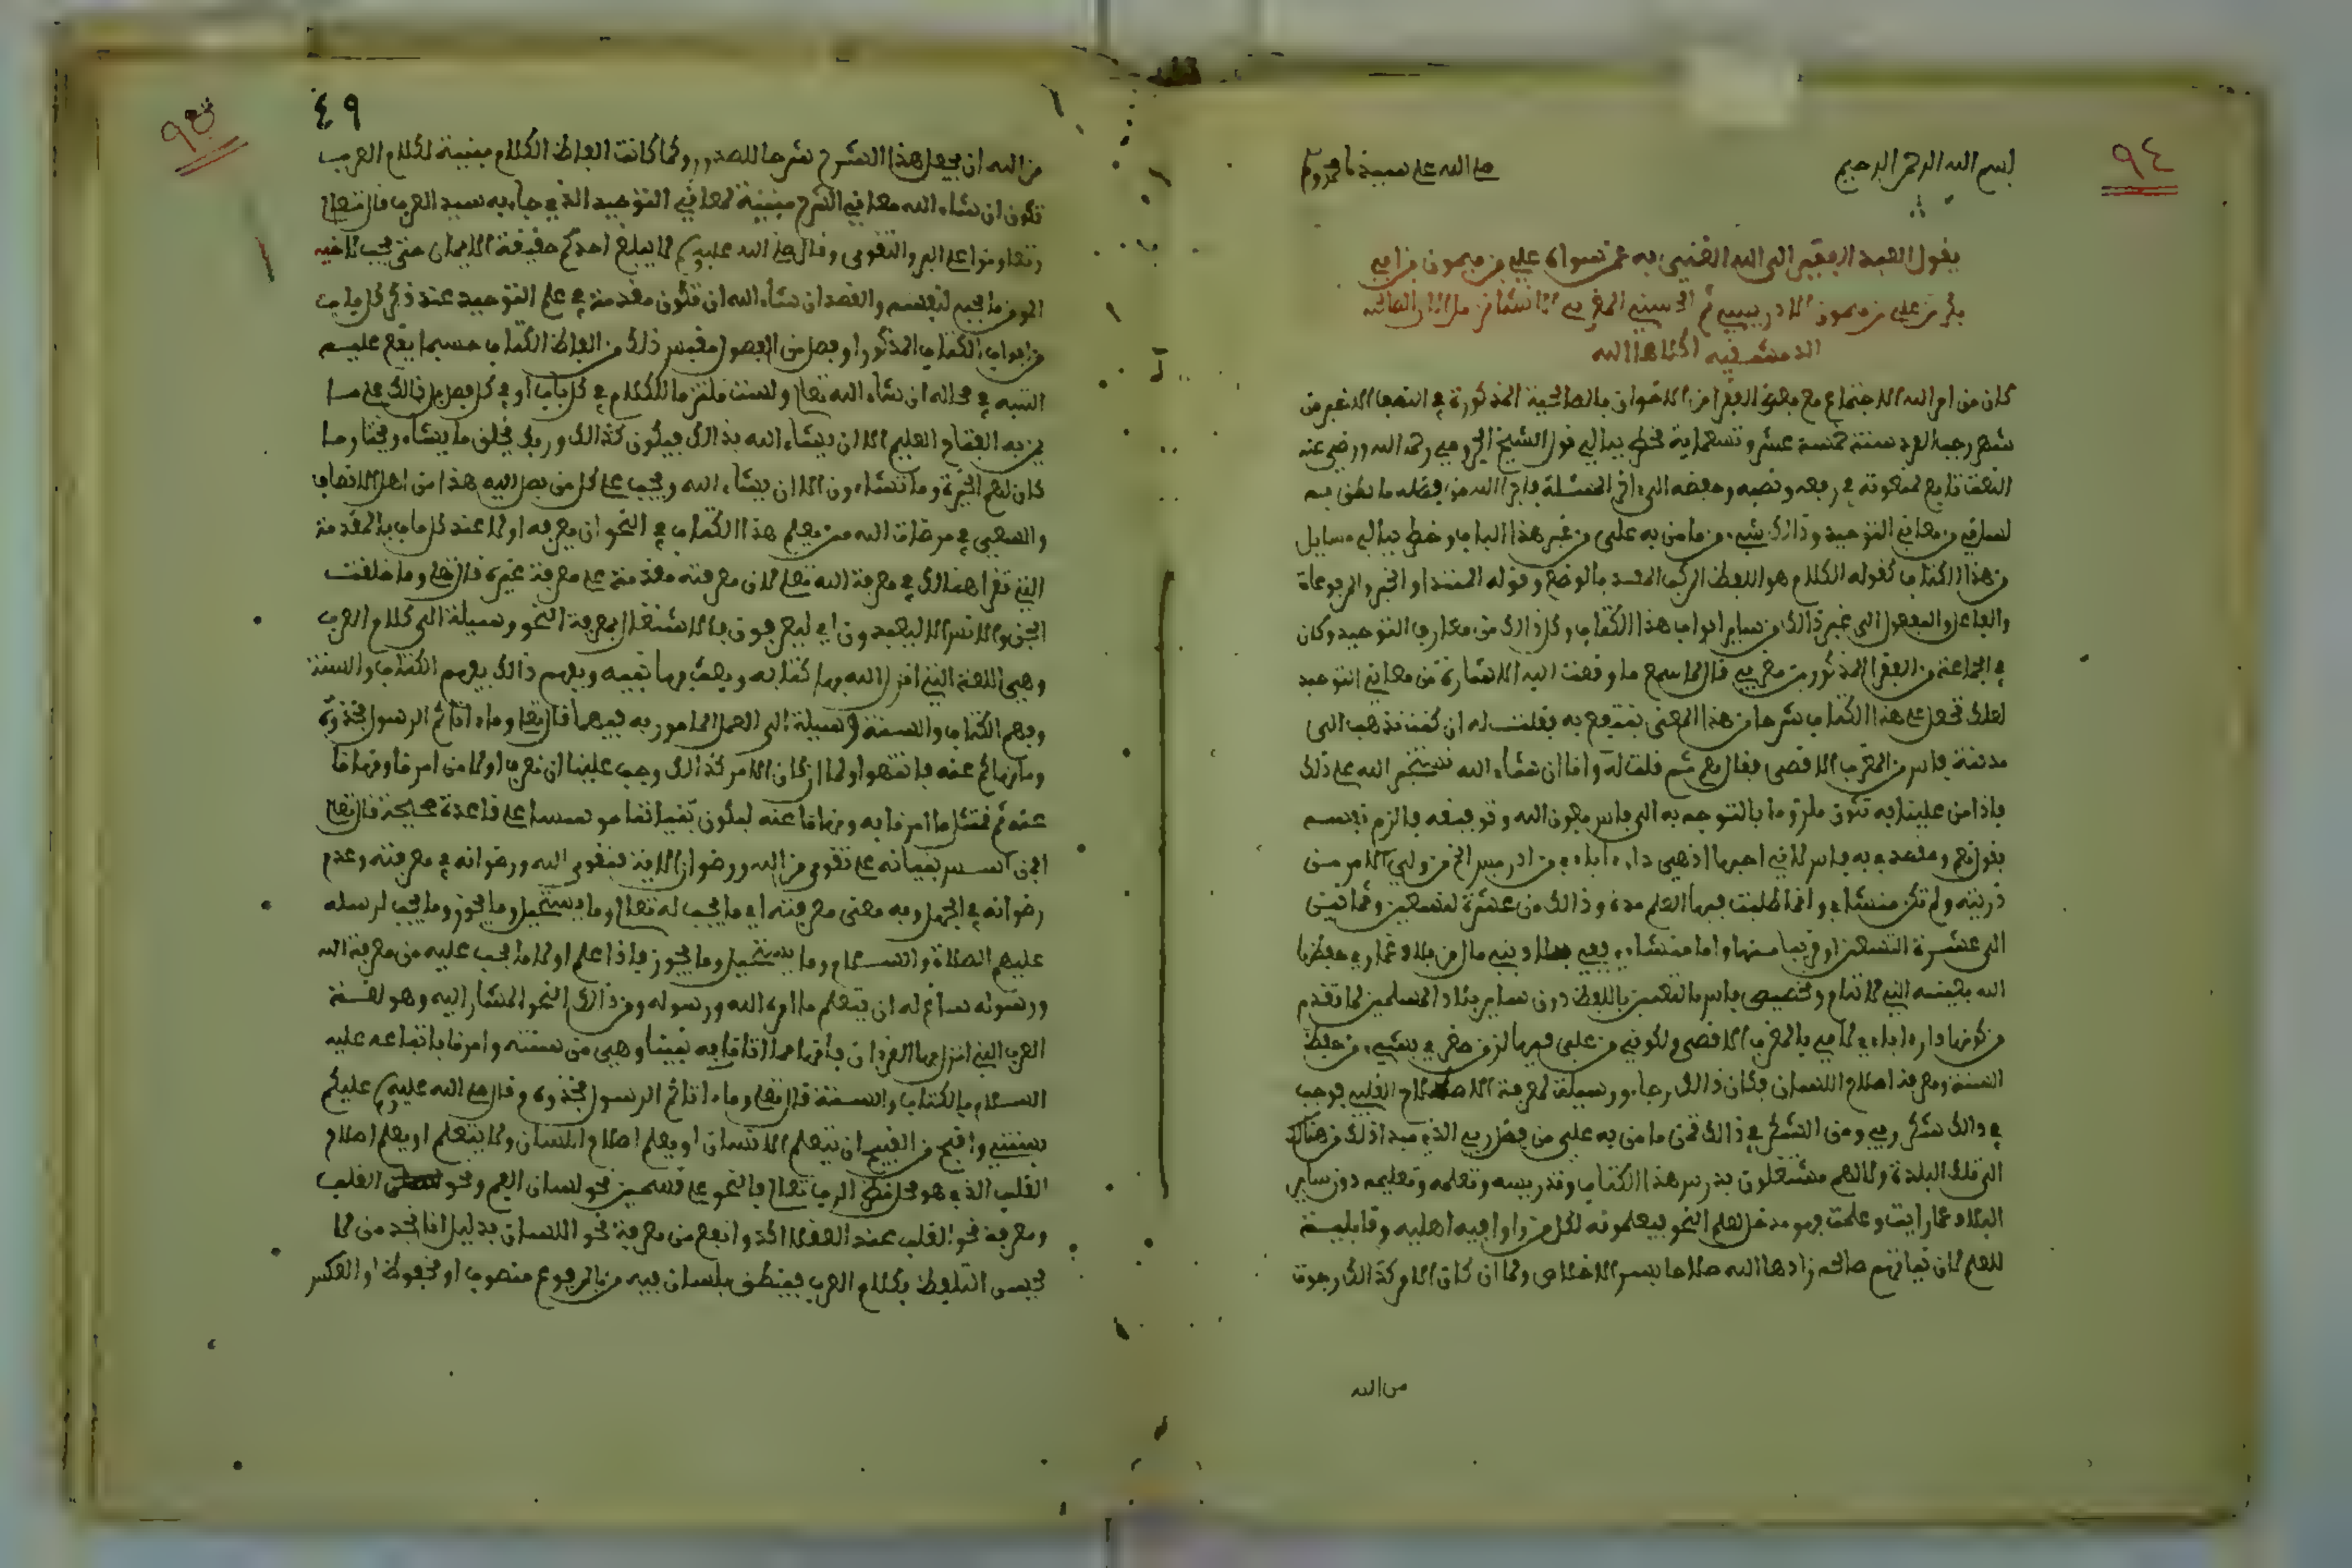 ٩٤
بسم الله الرحمن الرحيم صلى الله على سيدنا محمد وسلم
يقول العبد الفقير الى الله الغني به عن سواه علي بن ميمون بن ابي
بكر بن علي بن ميمون الادريسي ثم الحسني المغربي الانشا من
الدمشقية اكلاها الله
كان من امر الله الاجتماع مع بعض الفقرا من الاخوان بالصالحية المذكورة في النصف الاخير من
شهر رجب الفرد سنة خمسة عشر وتسعماية فخطر ببالي قول الشيخ الجرومي رحمه الله ورضي عنه
النعت تابع لمنعوته في رفعه ونصبه وخفضه الى اخر المسئلة فاجرا الله من فضله ما نطق به
لساني من معاني التوحيد وذالك شيء من ما من به علي من غير هذا الباب وخطر ببالي مسايل
من هذا الكتاب كقوله الكلام هو اللفظ المركب المفيد بالوضع وقوله المبتدا والخبر والمرفوعات
والفاعل والمفعول الى غير ذالك من ساير ابواب هذا الكتاب وكل ذالك من معارف التوحيد وكان
في الجماعة من الفقرا المذكورين مغربي فقال لما سمع ما وقعت اليه الاشارة من معاني التوحيد
لعلك تجعل على هذا الكتاب شرحا من هذا المعنى ننتفع به فقلت له ان كنت تذهب الى
مدينة فاس من المغرب الاقصى فقال نعم ثم قلت له وانا ان شاء الله نستخير الله على ذلك
فاذا من علينا به تكون ملزوما بالتوجه به الى فاس بعون الله وتوفيقه فالزم نفسه
بقوله نعم به فاس لاني احبها اذ هي دار اباءي من ادريس الخ من ولي الامر من
ذريته ولم تكن منشاي وانما طلبت فيها العلم مدة وذالك من عشرة لتسعين وثمانين
الى عشرة التسعين او قريبا منها واما منشاءي ففي بلاد بني مال من بلاد غمارى حفظها
الله بعينه التي لا تنام وتخصيصي فاس بالتعيين باللفظ دون ساير بلاد المسلمين لما تقدم
من كونها دار اباءي لامي بالمغرب الاقصى ولكوني من علي فيها الزمن حضري بشيء من حفظ
السنة ومعرفة اصلاح اللسان فكان ذالك رجاء وسيلة لمعرفة الاصلاح القلبي فوجب
في ذالك شكر ربي ومن الشكر في ذالك نحن ما من به علي من فضل ربي الذي مبدا ذلك من هنالك
الى تلك البلدة ولانهم مشتغلون بدرس هذا الكتاب وتدريسه وتعلمه وتعليمه دون ساير
البلاد مما رايت وعلمت فهو مدخل لعلم النحو فيعلمونه لكل من راوا فيه اهلية وقابلية
للعلم لان نياتهم صالحة زادها الله صلاحا بسر الاخلاص ولما ان كان الامر كذالك رجوت
من الله
٤٩
من الله ان يجعل هذا الشرح شرحا للصدور ولما كانت الفاظ الكلام مبنية لكلام العرب
تكون ان شاء الله معاني الشرح مبنية لمعاني التوحيد الذي جاء به سيد العرب قال تعالى
وتعاونوا على البر والتقوى وقال صلى الله عليه وسلم لا يبلغ احدكم حقيقة الايمان حتى يحب لاخيه
المومن ما يحب لنفسه والقصد ان شاء الله ان تكون مقدمة في علم التوحيد عند ذكر كل باب
من ابواب الكتاب المذكور او فصل من الفصول مقتبس ذلك من الفاظ الكتاب حسبما يقع عليه
التنبيه في محاله ان شاء الله تعالى ولست ملتزما للكلام في كل باب او في كل فصل بل ذالك على ما
يمن به الفتاح العليم الا ان يشاء الله بذالك فيكون كذالك وربك يخلق ما يشاء ويختار ما
كان لهم الخيرة وما تشاءون الا ان يشاء الله ويجب على كل من يصل اليه هذا من اهل الانصاف
والسعي في مرضات الله ممن يعلم هذا الكتاب في النحو ان يعرفه اولا عند كل باب بالمقدمة
التي تقرا هنالك في معرفة الله تعالى لان معرفته مقدمة على معرفة غيره قال تعالى وما خلقت
الجن والانس الا ليعبدون اي ليعرفون فالاشتغال بمعرفة النحو وسيلة الى كلام العرب
وهي اللغة التي انزل الله بها كتابه وبعث بها نبيه وبفهم ذالك يفهم الكتاب والسنة
وفهم الكتاب والسنة وسيلة الى العمل المامور به فيهما قال تعالى وما اتاكم الرسول فخذوه
وما نهاكم عنه فانتهوا ولما ان كان الامر كذالك وجب علينا ان نعرف اولا من امرنا ونهانا
عنه ثم نمتثل ما امرنا به ونهانا عنه ليكون بنياننا موسسا على قاعدة صحيحة قال تعالى
افمن اسس بنيانه على تقوى من الله ورضوان الاية فتقوى الله ورضوانه في معرفته وعدم
رضوانه في الجهل به معنى معرفته اي ما يجب له تعالى وما يستحيل وما يجوز وما يجب لرسله
عليهم الصلاة والسلام وما يستحيل وما يجوز فاذا علم اولا ما يجب عليه من معرفة الله
ورسوله ساغ له ان يتعلم ما امره الله ورسوله ومن ذالك النحو المشار اليه وهو لغة
العرب التي انزل بها القران فافهامها اتانا به نبينا وهي من سنته وامرنا باتباعه عليه
السلام بالكتاب والسنة قال تعالى وما اتاكم الرسول فخذوه وقال صلى الله عليه وسلم عليكم
بسنتي واقبح من القبيح ان يتعلم الانسان او يعلم اصلاح اللسان ولا يتعلم او يعلم اصلاح
القلب الذي هو محل نظر الرب تعالى فالنحو على قسمين نحو لسان الفم ونحو القلب
ومعرفة نحو القلب عند العقلا اكد وانفع من معرفة نحو اللسان بدليل انا نجد من لا
يحسن التلفظ بكلام العرب فينطق بلسان فيه من بالمرفوع منصوب او مخفوض او العكس